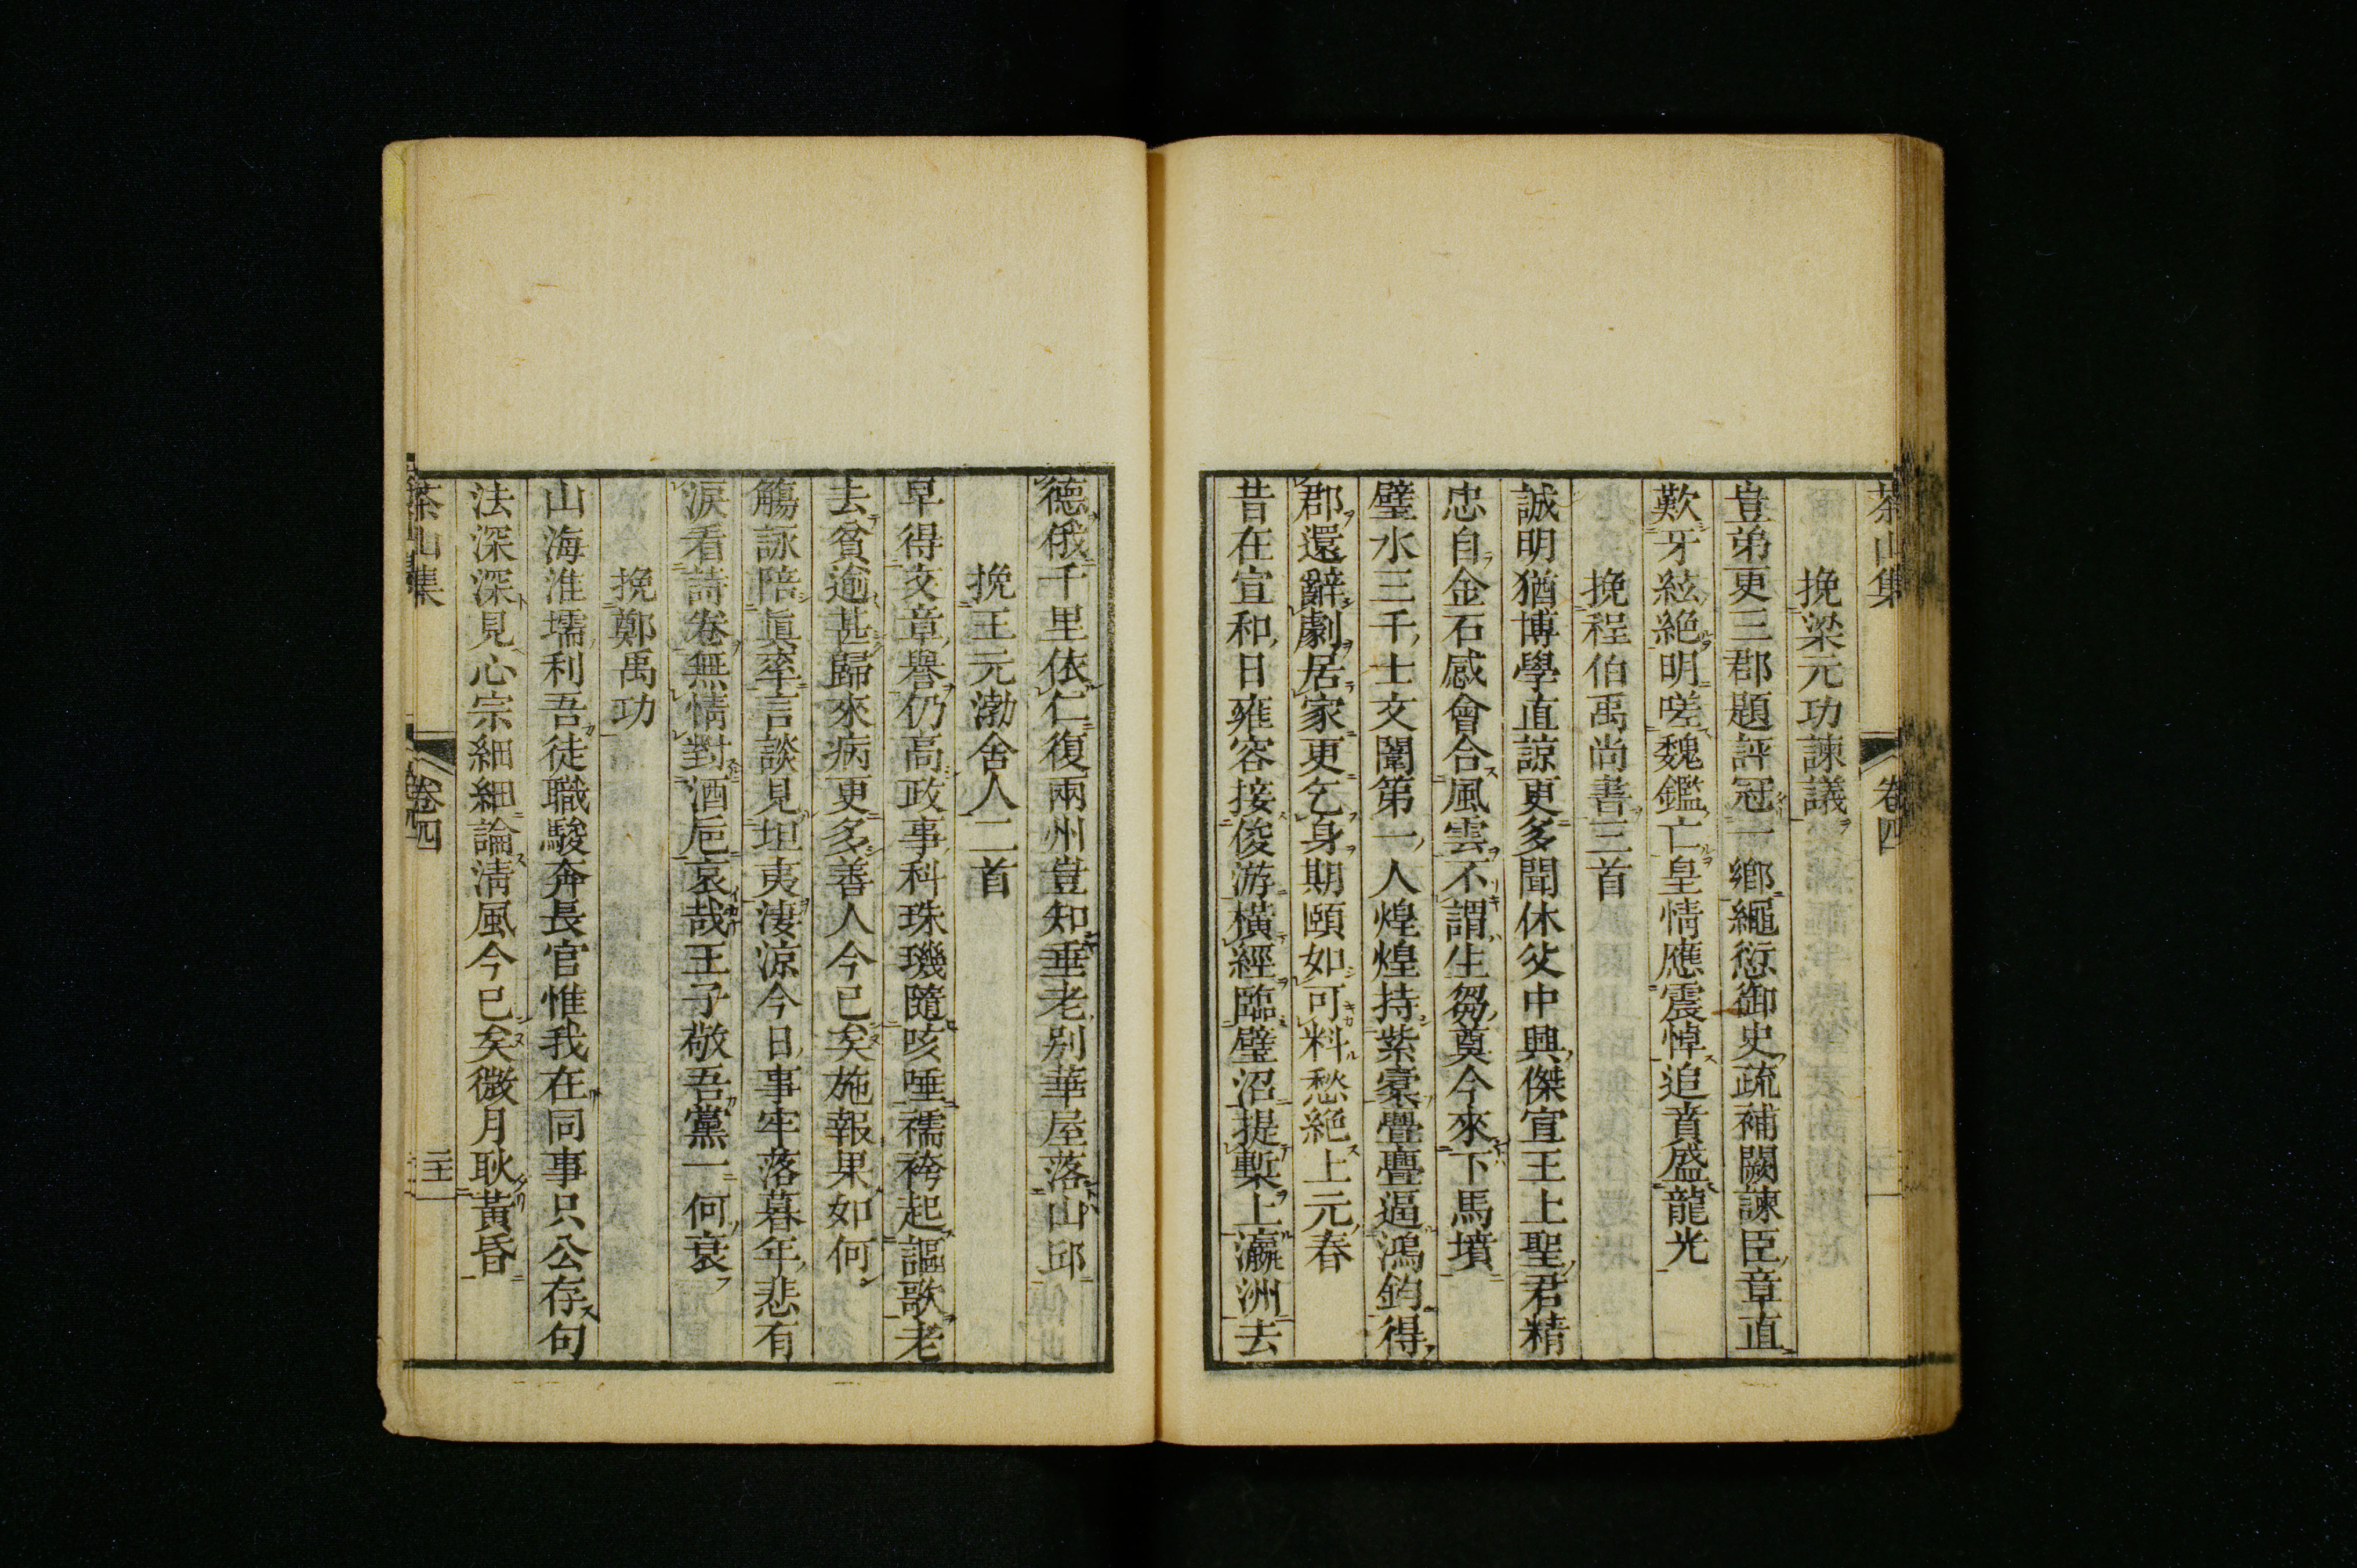 茶山集 卷四
挽梁元功諫議
豈弟更三郡題評冠一鄉繩愆御史疏補闕諫臣章直
歎牙絃絶明嗟魏鑑亡皇情應震悼追賁盛龍光
挽程伯禹尚書三首
誠明猶博學直諒更多聞休父中興傑宣王上聖君精
忠自金石感會合風雲不謂生芻奠今來下馬墳
璧水三千士文闈第一人煌煌持紫橐亹亹逼鴻鈞得
郡還辭劇居家更乞身期頤如可料愁絶上元春
昔在宣和日雍容接俊游橫經臨璧沼提槧上瀛洲去
德俄千里依仁復兩州豈知垂老别華屋落山邱
挽王元渤舍人二首
早得文章譽仍高政事科珠璣隨咳唾襦袴起謳歌老
去貧逾甚歸來病更多善人今已矣施報果如何
觴詠陪眞率言談見坦夷淒涼今日事牢落暮年悲有
淚看詩卷無情對酒卮哀哉王子敬吾黨一何衰
挽鄭禹功
山海淮壖利吾徒職駿奔長官惟我在同事只公存句
法深深見心宗細細論淸風今已矣微月耿黃昏
茶山集 卷四